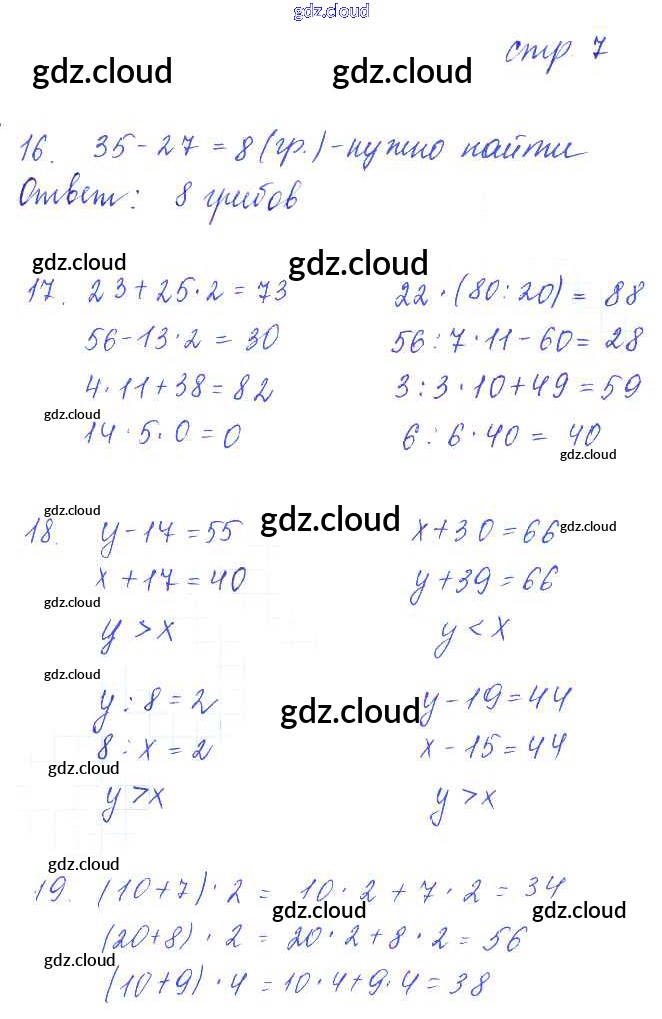 gdz.cloud
стр. 7
gdz.cloud gdz.cloud
16. 35 - 27 = 8 (гр.) - нужно найти
Ответ: 8 грибов
gdz.cloud gdz.cloud
17. 23 + 25 · 2 = 73 22 · (80 : 20) = 88
56 - 13 · 2 = 30 56 : 7 · 11 - 60 = 28
4 · 11 + 38 = 82 3 : 3 · 10 + 49 = 59
gdz.cloud
14 · 5 · 0 = 0 6 : 6 · 40 = 40
gdz.cloud
gdz.cloud gdz.cloud gdz.cloud
18. y - 17 = 55 x + 30 = 66
x + 17 = 40 y + 39 = 66
gdz.cloud
y > x y < x
gdz.cloud
y : 8 = 2 y - 19 = 44
gdz.cloud
8 : x = 2 x - 15 = 44
gdz.cloud
y > x y > x
gdz.cloud
19. (10 + 7) · 2 = 10 · 2 + 7 · 2 = 34
gdz.cloud gdz.cloud
(20 + 8) · 2 = 20 · 2 + 8 · 2 = 56
gdz.cloud
(10 + 9) · 4 = 10 · 4 + 9 · 4 = 38